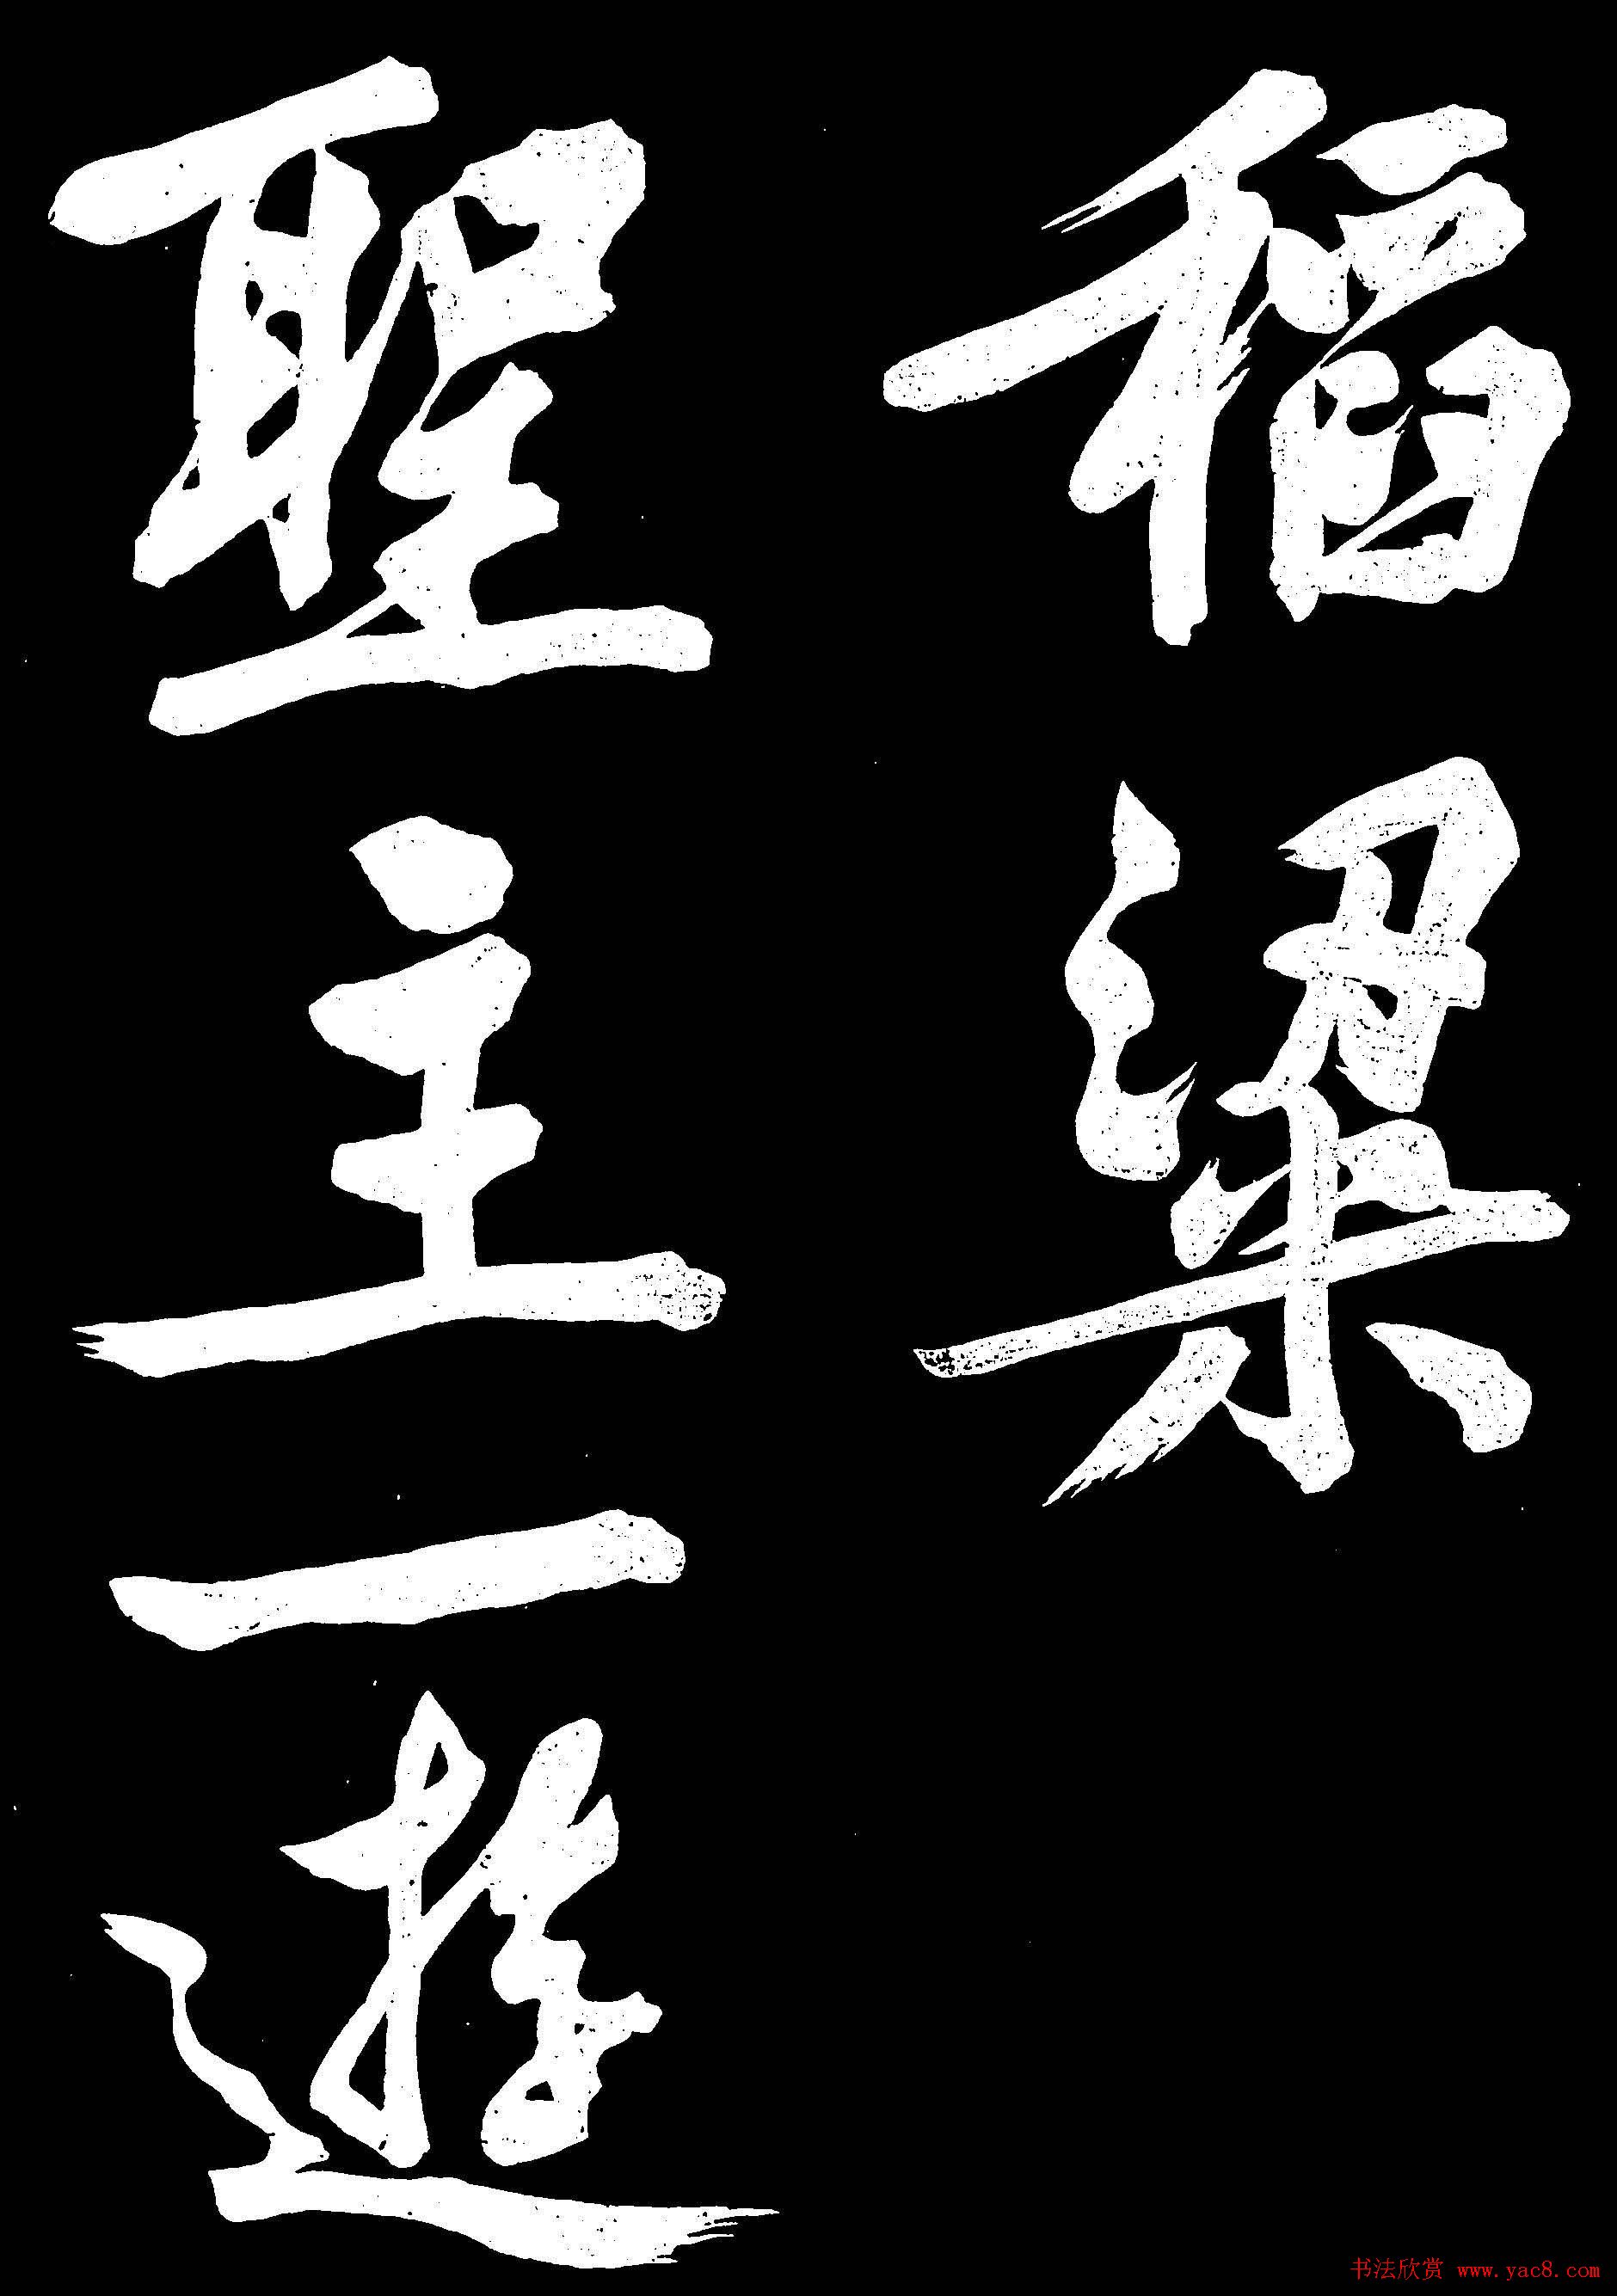 稻粱
聖主一遊
书法欣赏 www.yac8.com